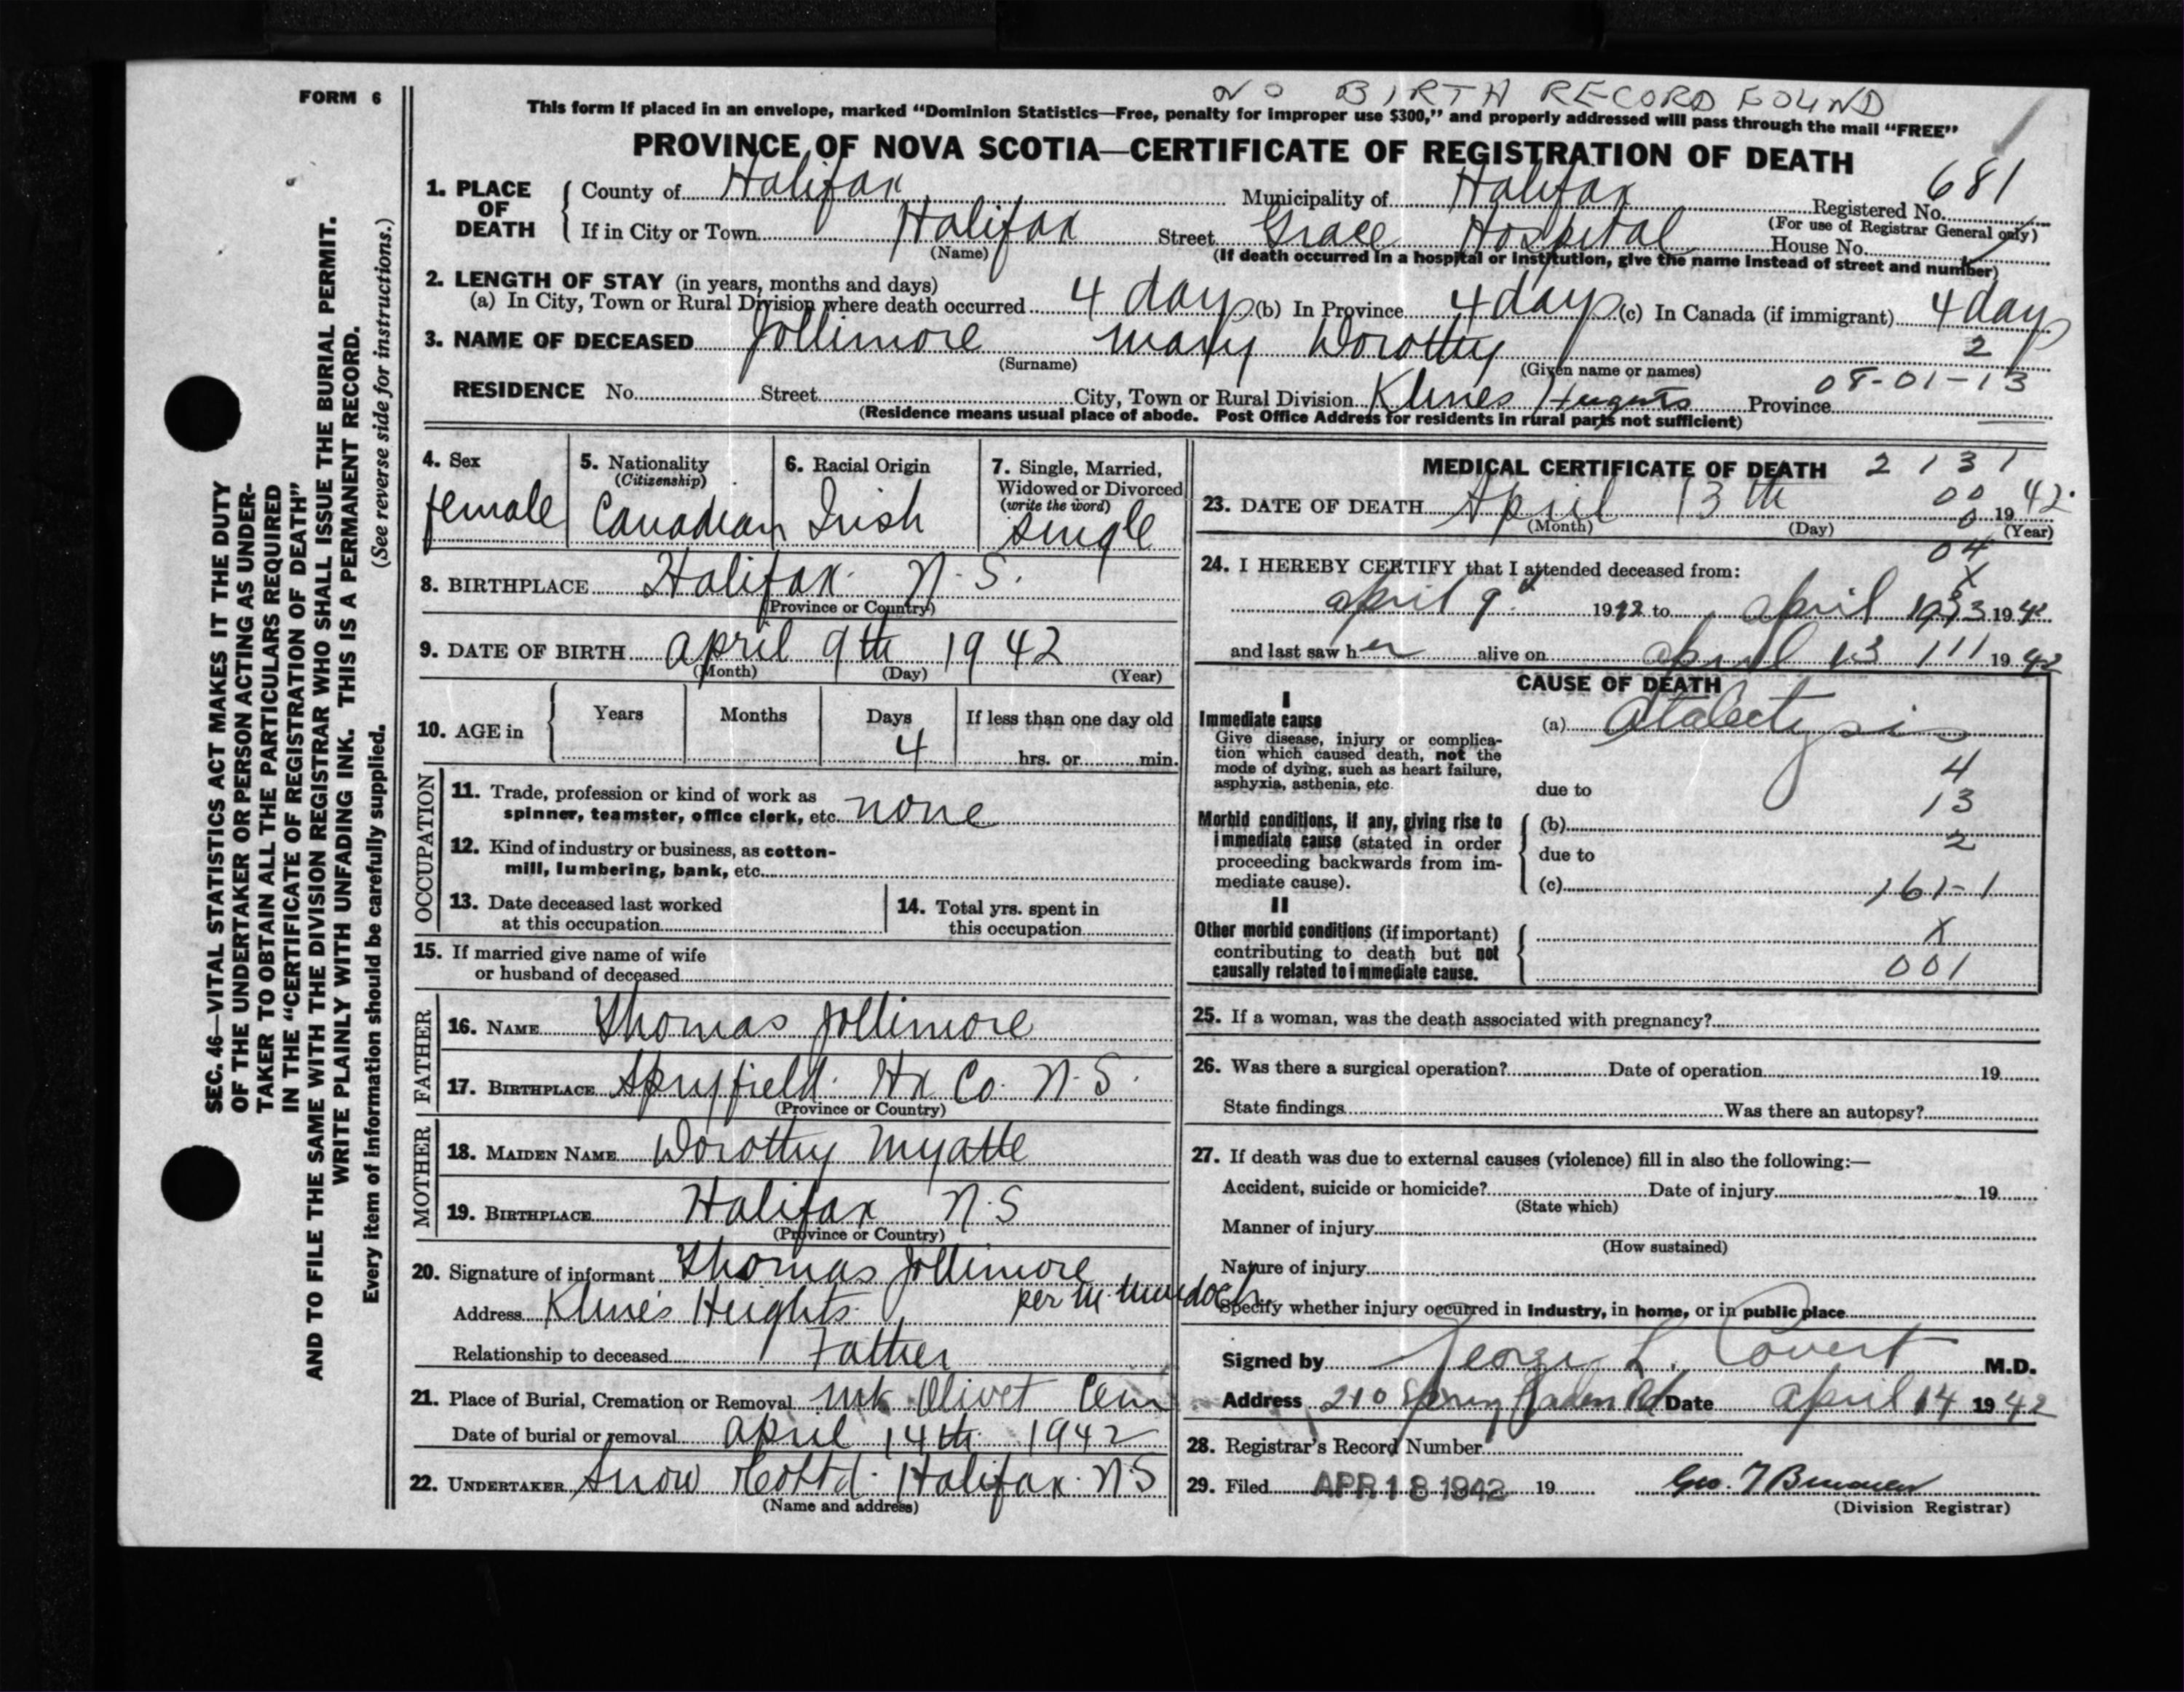 NO BIRTH RECORD FOUND
FORM 6
This form if placed in an envelope, marked "Dominion Statistics—Free, penalty for improper use $300," and properly addressed will pass through the mail "FREE"
PROVINCE OF NOVA SCOTIA—CERTIFICATE OF REGISTRATION OF DEATH
681
1. PLACE OF DEATH County of Halifax Municipality of Halifax Registered No.
(For use of Registrar General only)
If in City or Town Halifax Street Grace Hospital House No.
(Name) (If death occurred in a hospital or institution, give the name instead of street and number)
2. LENGTH OF STAY (in years, months and days)
(a) In City, Town or Rural Division where death occurred 4 days (b) In Province 4 days (c) In Canada (if immigrant) 4 days
3. NAME OF DECEASED Jollimore Mary Dorothy 2
(Surname) (Given name or names)
08-01-13
RESIDENCE No. Street City, Town or Rural Division Klines Heights Province
(Residence means usual place of abode. Post Office Address for residents in rural parts not sufficient)
4. Sex
female
5. Nationality
(Citizenship)
Canadian
6. Racial Origin
Irish
7. Single, Married,
Widowed or Divorced
(write the word)
single
8. BIRTHPLACE Halifax N.S.
(Province or Country)
9. DATE OF BIRTH April 9th 1942
(Month) (Day) (Year)
10. AGE in Years Months Days If less than one day old
4 hrs. or min.
OCCUPATION
11. Trade, profession or kind of work as
spinner, teamster, office clerk, etc. none
12. Kind of industry or business, as cotton-
mill, lumbering, bank, etc.
13. Date deceased last worked
at this occupation
14. Total yrs. spent in
this occupation
15. If married give name of wife
or husband of deceased
FATHER
16. NAME Thomas Jollimore
17. BIRTHPLACE Spryfield Hx Co. N.S.
(Province or Country)
MOTHER
18. MAIDEN NAME Dorothy Myatte
19. BIRTHPLACE Halifax N.S
(Province or Country)
20. Signature of informant Thomas Jollimore
per M. Murdoch
Address Kline's Heights
Relationship to deceased Father
21. Place of Burial, Cremation or Removal Mt Olivet Cem
Date of burial or removal April 14th 1942
22. UNDERTAKER Snow & Co Ltd. Halifax N.S
(Name and address)
MEDICAL CERTIFICATE OF DEATH 2 1 3 1
00
23. DATE OF DEATH April 13th 0 19 42
(Month) (Day) (Year)
04
24. I HEREBY CERTIFY that I attended deceased from:
X
April 9 1942 to April 13 1942
and last saw her alive on April 13 111 1942
CAUSE OF DEATH
I
Immediate cause
Give disease, injury or complica-
tion which caused death, not the
mode of dying, such as heart failure,
asphyxia, asthenia, etc.
(a)
4
due to
13
Morbid conditions, if any, giving rise to
immediate cause (stated in order
proceeding backwards from im-
mediate cause).
(b)
2
due to
(c) 161-1
II
Other morbid conditions (if important)
contributing to death but not
causally related to immediate cause.
X
001
25. If a woman, was the death associated with pregnancy?
26. Was there a surgical operation? Date of operation 19
State findings Was there an autopsy?
27. If death was due to external causes (violence) fill in also the following:—
Accident, suicide or homicide? Date of injury 19
(State which)
Manner of injury
(How sustained)
Nature of injury
Specify whether injury occurred in industry, in home, or in public place
Signed by George L. Covert M.D.
Address 210 Spring Garden Rd Date April 14 1942
28. Registrar's Record Number
29. Filed APR 18 1942 19
(Division Registrar)
SEC. 46—VITAL STATISTICS ACT MAKES IT THE DUTY
OF THE UNDERTAKER OR PERSON ACTING AS UNDER-
TAKER TO OBTAIN ALL THE PARTICULARS REQUIRED
IN THE "CERTIFICATE OF REGISTRATION OF DEATH"
AND TO FILE THE SAME WITH THE DIVISION REGISTRAR WHO SHALL ISSUE THE BURIAL PERMIT.
WRITE PLAINLY WITH UNFADING INK. THIS IS A PERMANENT RECORD.
Every item of information should be carefully supplied. (See reverse side for instructions.)